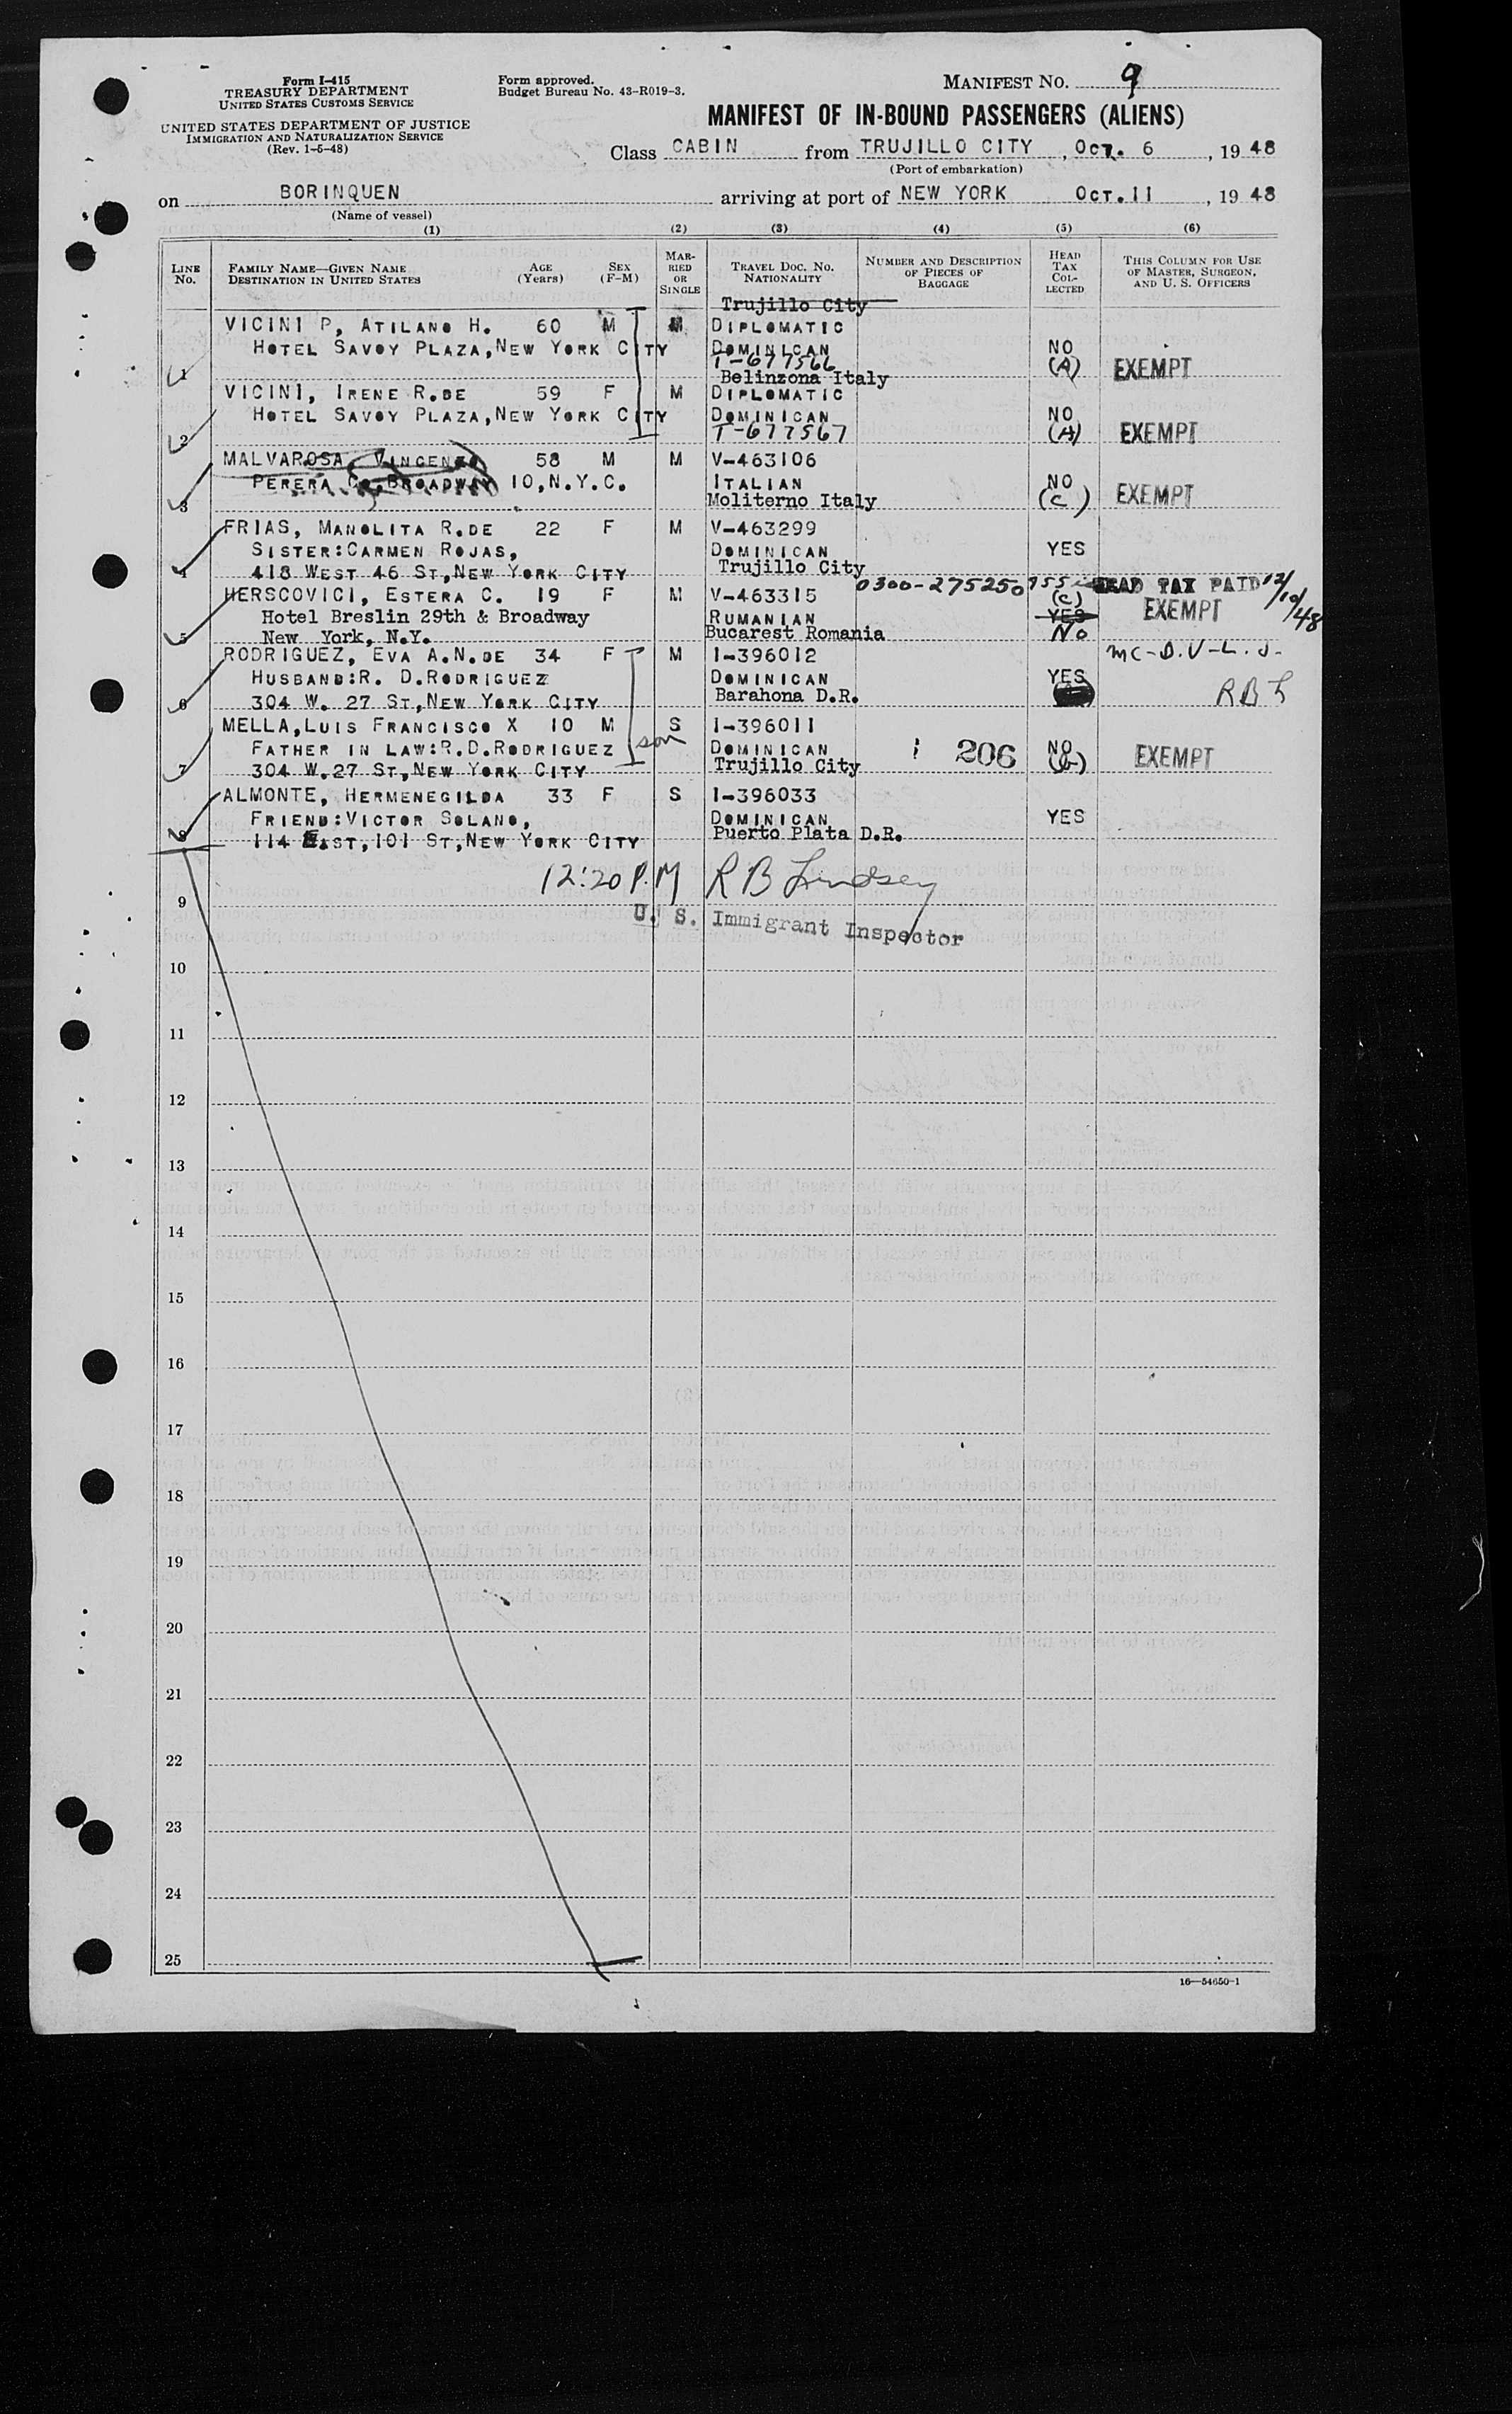 Form I-415
TREASURY DEPARTMENT
UNITED STATES CUSTOMS SERVICE
UNITED STATES DEPARTMENT OF JUSTICE
IMMIGRATION AND NATURALIZATION SERVICE
(Rev. 1-5-48)
Form approved.
Budget Bureau No. 43-R019-3.
MANIFEST NO. 9
MANIFEST OF IN-BOUND PASSENGERS (ALIENS)
Class CABIN from TRUJILLO CITY, OCT. 6, 1948
(Port of embarkation)
on BORINQUEN arriving at port of NEW YORK OCT.11, 1948
(Name of vessel)
(1) (2) (3) (4) (5) (6)
LINE NO. FAMILY NAME—GIVEN NAME DESTINATION IN UNITED STATES AGE (Years) SEX (F-M) MARRIED OR SINGLE TRAVEL DOC. NO. NATIONALITY NUMBER AND DESCRIPTION OF PIECES OF BAGGAGE HEAD TAX COLLECTED THIS COLUMN FOR USE OF MASTER, SURGEON, AND U. S. OFFICERS
Trujillo City
VICINI P, ATILANO H. 60 M M DIPLOMATIC
HOTEL SAVOY PLAZA, NEW YORK CITY DOMINICAN NO
1 T-677566 (A) EXEMPT
Belinzona Italy
VICINI, IRENE R.DE 59 F M DIPLOMATIC
HOTEL SAVOY PLAZA, NEW YORK CITY DOMINICAN NO
2 T-677567 (A) EXEMPT
MALVAROSA, VINCENZO 58 M M V-463106
PERERA CO, BROADWAY 10, N.Y.C. ITALIAN NO
3 Moliterno Italy (C) EXEMPT
FRIAS, MANOLITA R.DE 22 F M V-463299
SISTER: CARMEN ROJAS, DOMINICAN YES
4 418 WEST 46 ST, NEW YORK CITY Trujillo City
0300-275250 HEAD TAX PAID 12/10/48
HERSCOVICI, ESTERA C. 19 F M V-463315 (C) EXEMPT
Hotel Breslin 29th & Broadway RUMANIAN YES
5 New York, N.Y. Bucarest Romania No
RODRIGUEZ, EVA A.N.DE 34 F M I-396012 MC-D.V-L.J-
HUSBAND: R. D.RODRIGUEZ DOMINICAN YES
6 304 W. 27 ST, NEW YORK CITY Barahona D.R. RBL
MELLA, LUIS FRANCISCO X 10 M S I-396011
FATHER IN LAW: R.D.RODRIGUEZ son DOMINICAN 206 NO EXEMPT
7 304 W.27 ST, NEW YORK CITY Trujillo City
ALMONTE, HERMENEGILDA 33 F S I-396033
FRIEND: VICTOR SOLANO, DOMINICAN YES
8 114 EAST, 101 ST, NEW YORK CITY Puerto Plata D.R.
12:20 P.M R B Lindsey
9 U. S. Immigrant Inspector
10
11
12
13
14
15
16
17
18
19
20
21
22
23
24
25
16—54650-1